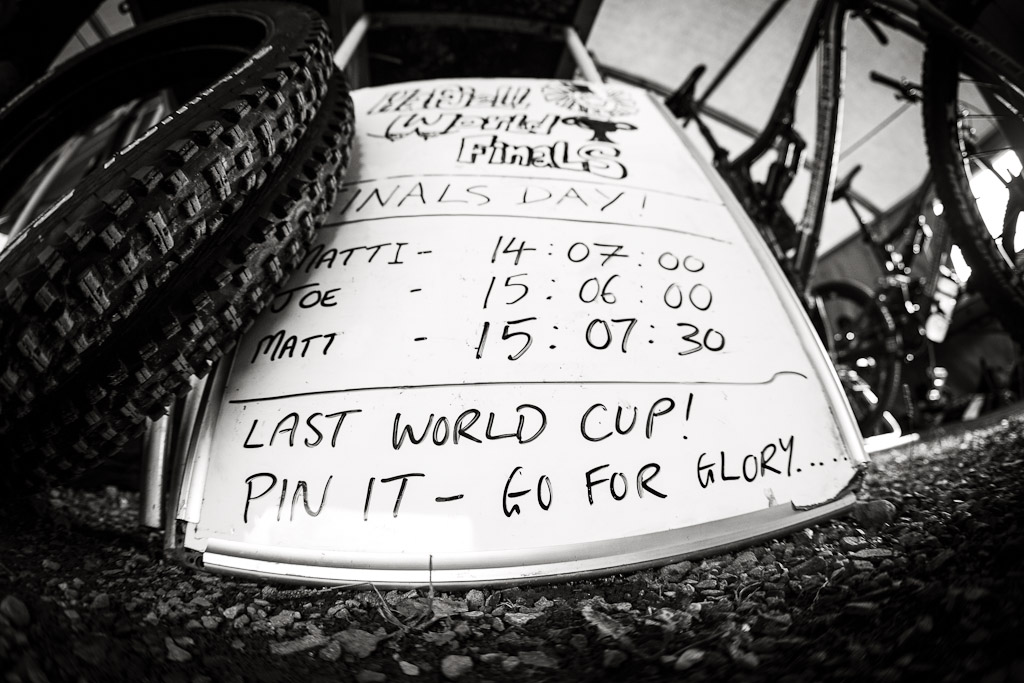 World
Finals
FINALS DAY!
MATTI - 14:07:00
JOE - 15:06:00
MATT - 15:07:30
LAST WORLD CUP!
PIN IT - GO FOR GLORY.....